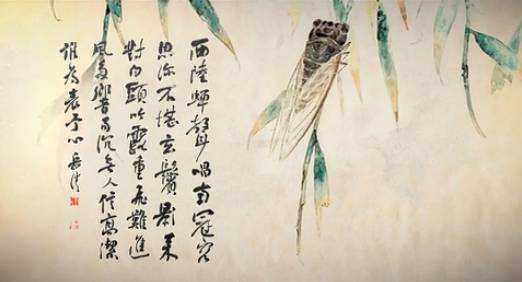 西陸蟬聲唱南冠客
思深不堪玄鬢影来
對白頭吟露重飛難進
風多響易沉無人信高潔
誰為表予心